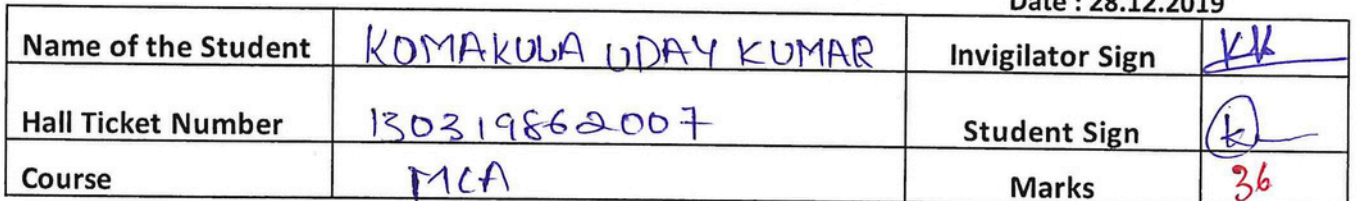 Date : 28.12.2019
Name of the Student KOMAKULA UDAY KUMAR Invigilator Sign KK
Hall Ticket Number 130319862007 Student Sign k
Course MCA Marks 36